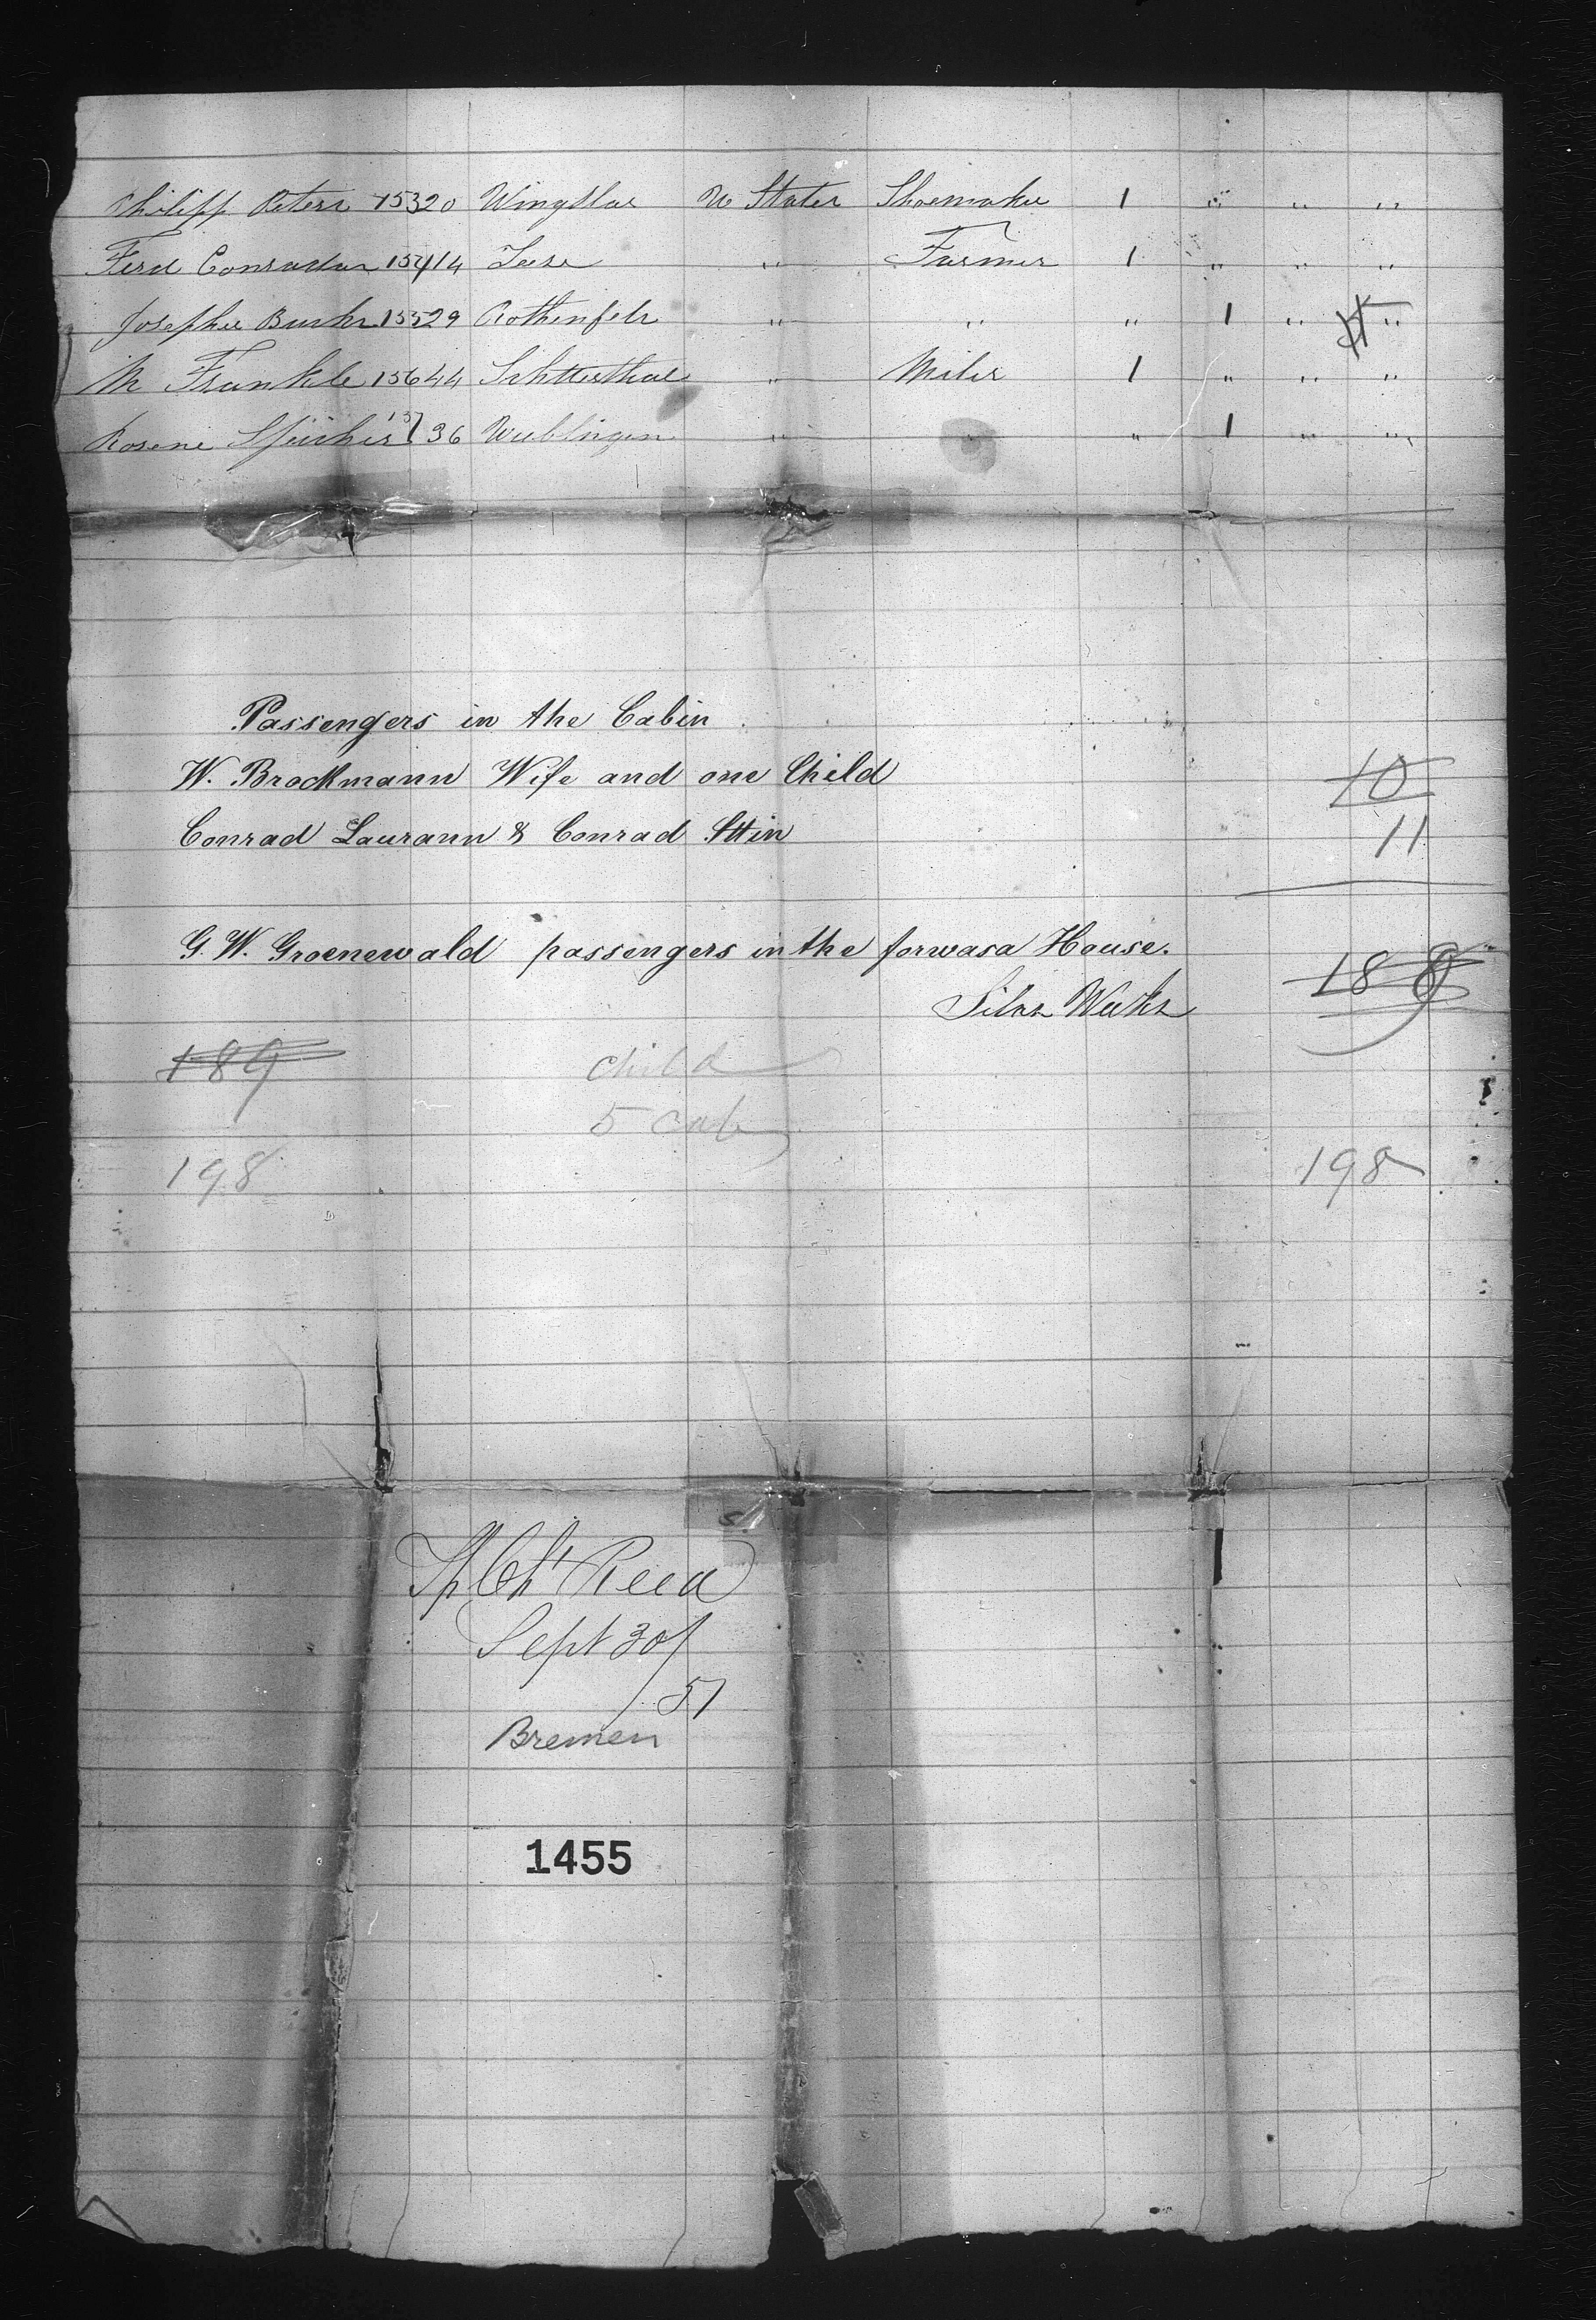 Philipp Peters 153 20 Wingsbae U States Shoemaker 1 " " "
Ferd Conradan 154 14 Leese " Farmer 1 " " "
Josephe Burker 155 29 Rothenfels " " " 1 " "
M Frankele 156 44 Schtterthal " Miler 1 " " "
Rosene 157 36 Wieblingen " " " 1 " "
Passengers in the Cabin
W. Brockmann Wife and one Child
10
Conrad Laurann & Conrad Sttin
11
G. W. Groenewald passengers in the forwasa House.
188
Silas Weeks
189
Child
5 Cab
198
198
Sp Cht Reed
Sept 30/
51
Bremen
1455